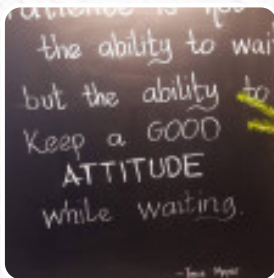 the ability to wai
but the ability to
Keep a GOOD
ATTITUDE
while waiting.